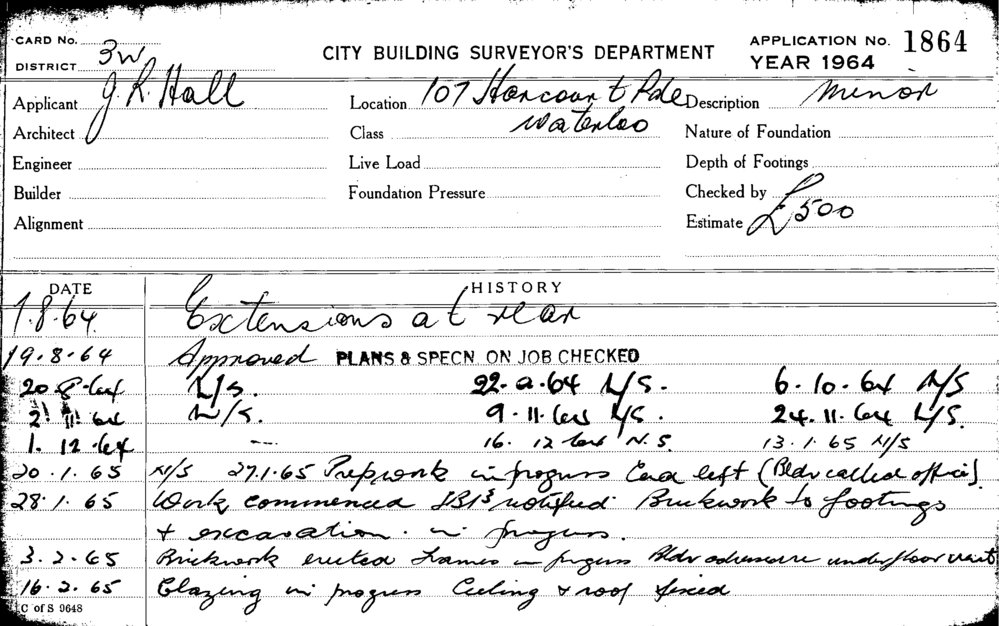 CARD No.
DISTRICT 3W
CITY BUILDING SURVEYOR'S DEPARTMENT
APPLICATION No. 1864
YEAR 1964
Applicant J. R. Hall
Location 107 Harcourt Pde
Description Minor
Architect
Class Waterloo
Nature of Foundation
Engineer
Live Load
Depth of Footings
Builder
Foundation Pressure
Checked by
Alignment
Estimate £500
DATE HISTORY
7.8.64 Extensions at rear
19.8.64 Approved PLANS & SPECN. ON JOB CHECKED
20.8.64 N/S. 22.9.64 N/S. 6.10.64 N/S
2.11.64 N/S. 9.11.64 N/S. 24.11.64 N/S.
1.12.64 — 16.12.64 N.S. 13.1.65 N/S
20.1.65 N/S 27.1.65 Prepwork in progress Card left (Bldr called office).
28.1.65 Work commenced notified Brickwork to footings
+ excavation in progress.
3.2.65 Brickwork erected Frames in progress Bldr underfloor vents
16.2.65 Glazing in progress Ceiling & roof fixed
C of S 9648